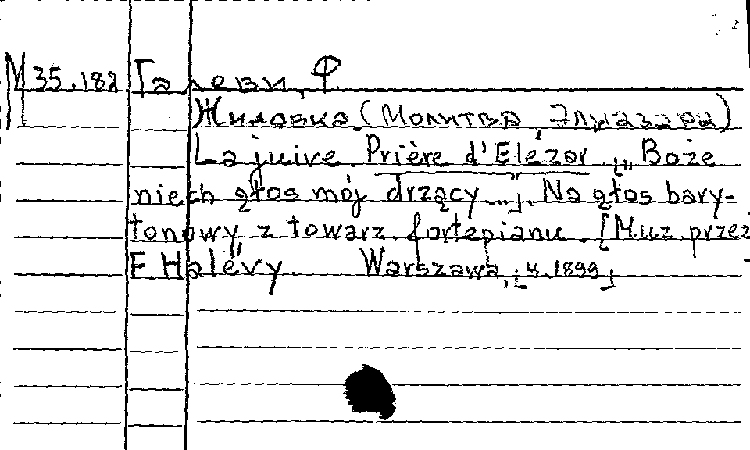 M 35.182 Галеви, Ф
Жидовка (Молитва Элиазара)
La juive. Prière d'Elézar „Boże
niech głos mój drżący..." Na głos bary-
tonowy z towarz. fortepianu. [Muz. przez
F. Halévy Warszawa, 1899]